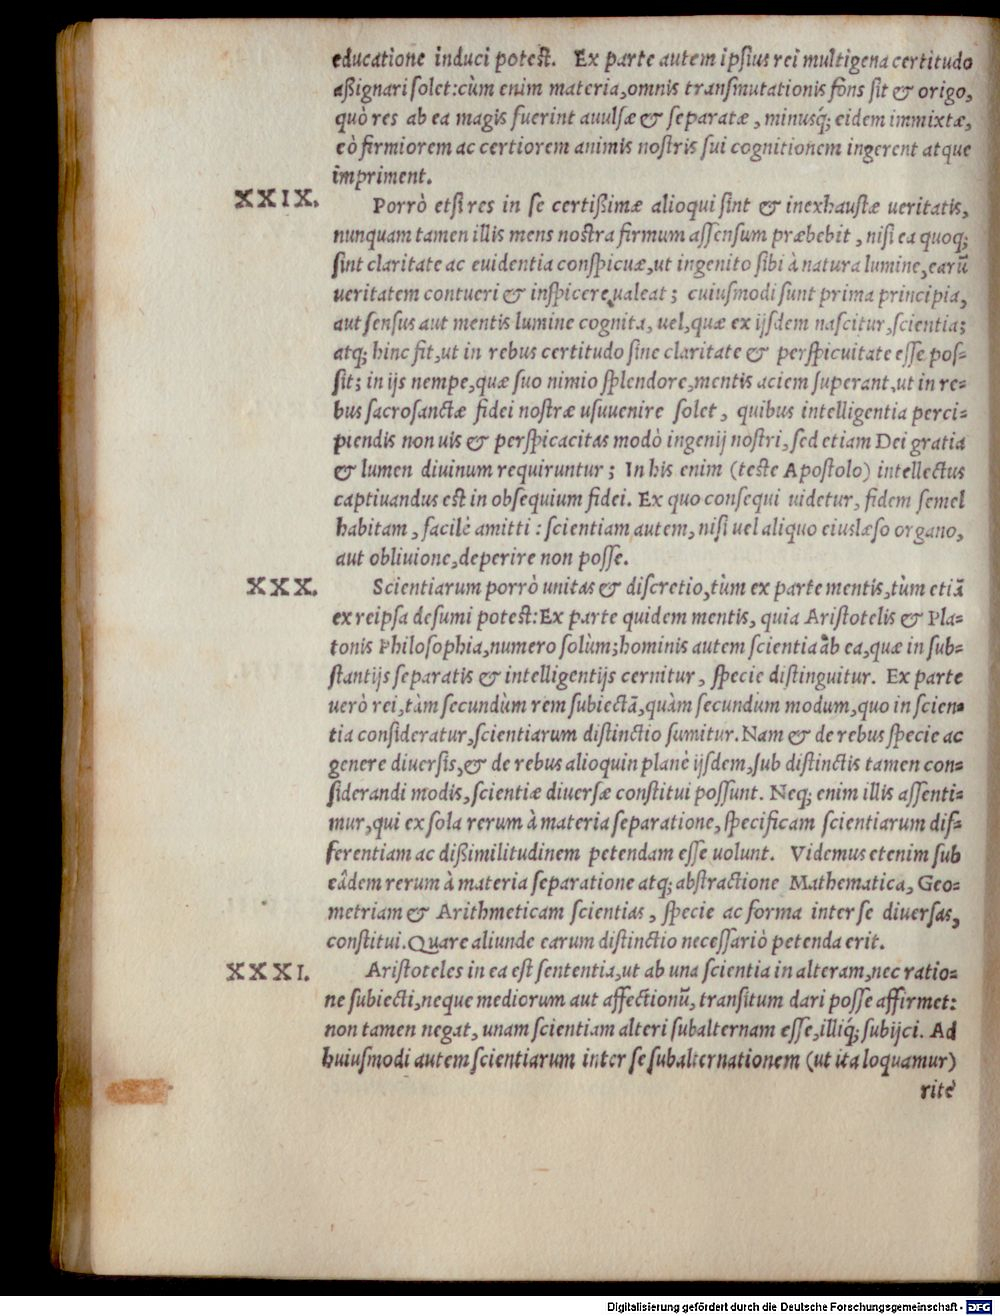 educatione induci potest. Ex parte autem ipsius rei multigena certitudo
aßignari solet: cùm enim materia, omnis transmutationis fons sit & origo,
quò res ab ea magis fuerint auulsæ & separatæ, minusq́; eidem immixtæ,
eò firmiorem ac certiorem animis nostris sui cognitionem ingerent atque
impriment.
XXIX. Porrò etsi res in se certißimæ alioqui sint & inexhaustæ ueritatis,
nunquam tamen illis mens nostra firmum assensum præbebit, nisi ea quoq;
sint claritate ac euidentia conspicuæ, ut ingenito sibi à natura lumine, earũ
ueritatem contueri & inspicere ualeat; cuiusmodi sunt prima principia,
aut sensus aut mentis lumine cognita, uel, quæ ex ijsdem nascitur, scientia;
atq; hinc fit, ut in rebus certitudo sine claritate & perspicuitate esse pos=
sit; in ijs nempe, quæ suo nimio splendore, mentis aciem superant, ut in re=
bus sacrosanctæ fidei nostræ usuuenire solet, quibus intelligentia perci=
piendis non uis & perspicacitas modò ingenij nostri, sed etiam Dei gratia
& lumen diuinum requiruntur; In his enim (teste Apostolo) intellectus
captiuandus est in obsequium fidei. Ex quo consequi uidetur, fidem semel
habitam, facilè amitti: scientiam autem, nisi uel aliquo eius læso organo,
aut obliuione, deperire non posse.
XXX. Scientiarum porrò unitas & discretio, tùm ex parte mentis, tùm etiã
ex re ipsa desumi potest: Ex parte quidem mentis, quia Aristotelis & Pla=
tonis Philosophia, numero solùm; hominis autem scientia ab ea, quæ in sub=
stantijs separatis & intelligentijs cernitur, specie distinguitur. Ex parte
uerò rei, tàm secundùm rem subiectã, quàm secundum modum, quo in scien=
tia consideratur, scientiarum distinctio sumitur. Nam & de rebus specie ac
genere diuersis, & de rebus alioquin planè ijsdem, sub distinctis tamen con=
siderandi modis, scientiæ diuersæ constitui possunt. Neq; enim illis assenti=
mur, qui ex sola rerum à materia separatione, specificam scientiarum dif=
ferentiam ac dißimilitudinem petendam esse uolunt. Videmus etenim sub
eâdem rerum à materia separatione atq; abstractione Mathematica, Geo=
metriam & Arithmeticam scientias, specie ac forma inter se diuersas,
constitui. Quare aliunde earum distinctio necessariò petenda erit.
XXXI. Aristoteles in ea est sententia, ut ab una scientia in alteram, nec ratio=
ne subiecti, neque mediorum aut affectionũ, transitum dari posse affirmet:
non tamen negat, unam scientiam alteri subalternam esse, illiq́; subijci. Ad
huiusmodi autem scientiarum inter se subalternationem (ut ita loquamur)
ritè
Digitalisierung gefördert durch die Deutsche Forschungsgemeinschaft - DFG